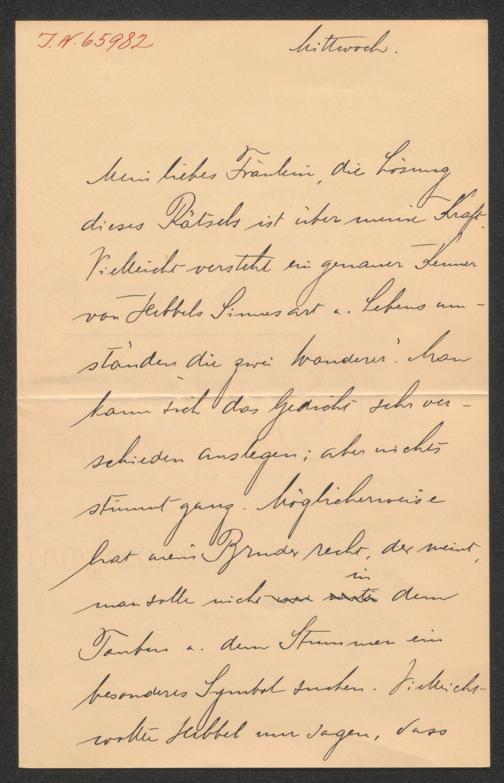 J.N. 65982
Mittwoch.
Mein liebes Fräulein, die Lösung
dieses Rätsels ist über meine Kraft.
Vielleicht versteht ein genauer Kenner
von Hebbels Sinnesart u. Lebensum-
ständen die zwei Wanderer. Man
kann sich das Gedicht sehr ver-
schieden auslegen; aber nichts
stimmt ganz. Möglicherweise
hat mein Bruder recht, der meint,
man solle nicht in dem
Tauben u. dem Stummen ein
besonderes Symbol suchen. Vielleicht
wollte Hebbel nur sagen, dass